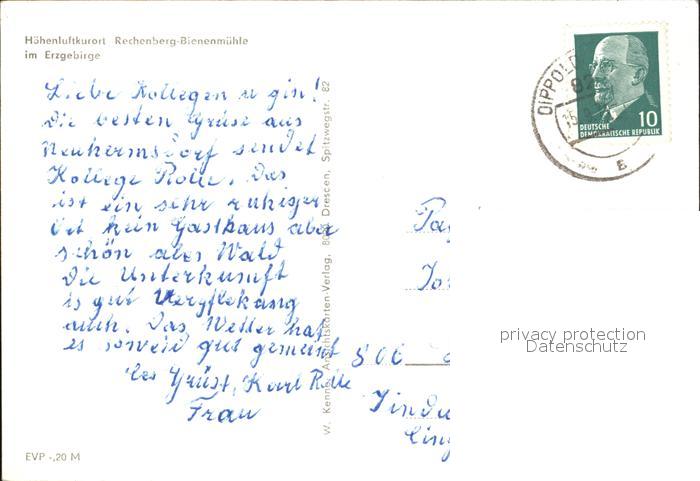 Höhenluftkurort Rechenberg-Bienenmühle
im Erzgebirge
Liebe Kollegen u gin!
Die besten Grüse aus
Neuhermsdorf sendet
Kollege Rolle. Das
ist ein sehr ruhiger
Ort kein Gasthaus aber
schön ales Wald
Die Unterkunft
is gut Verpflekang
auch. Das Wetter hat
es soweid gut gemeint
Es Grüst, Karl Rolle
Frau
EVP -,20 M
W. Kenne, Ansichtskarten-Verlag, 8020 Dresden, Spitzwegstr. 82
DIPPOLD
82
E
10
DEUTSCHE
DEMOKRATISCHE REPUBLIK
806
privacy protection
Datenschutz